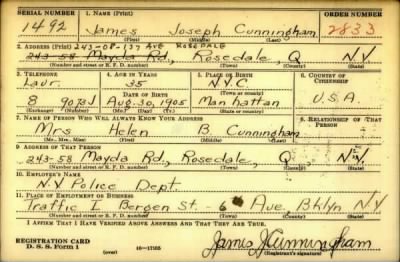 SERIAL NUMBER 1. NAME (Print) ORDER NUMBER
1492 James Joseph Cunningham 2833
(First) (Middle) (Last)
2. ADDRESS (Print) 243-08-137 AVE ROSEDALE
243-58 Mayda Rd., Rosedale, Q NY
(Number and street or R. F. D. number) (Town) (County) (State)
3. TELEPHONE 4. AGE IN YEARS 5. PLACE OF BIRTH 6. COUNTRY OF CITIZENSHIP
Laur. 35 N.Y.C.
DATE OF BIRTH (Town or county)
8 9073J Aug. 30, 1905 Manhattan U.S.A.
(Exchange) (Number) (Mo.) (Day) (Yr.) (State or country)
7. NAME OF PERSON WHO WILL ALWAYS KNOW YOUR ADDRESS 8. RELATIONSHIP OF THAT PERSON
Mrs Helen B. Cunningham
(Mr., Mrs., Miss) (First) (Middle) (Last)
9. ADDRESS OF THAT PERSON
243-58 Mayda Rd., Rosedale, Q N.Y.
(Number and street or R. F. D. number) (Town) (County) (State)
10. EMPLOYER'S NAME
N.Y Police Dept.
11. PLACE OF EMPLOYMENT OR BUSINESS
Traffic I Bergen St. - 6 Ave. Bklyn NY
(Number and street or R. F. D. number) (Town) (County) (State)
I AFFIRM THAT I HAVE VERIFIED ABOVE ANSWERS AND THAT THEY ARE TRUE.
REGISTRATION CARD
D. S. S. Form 1 16-17105 James J Cunningham
(Registrant's signature)